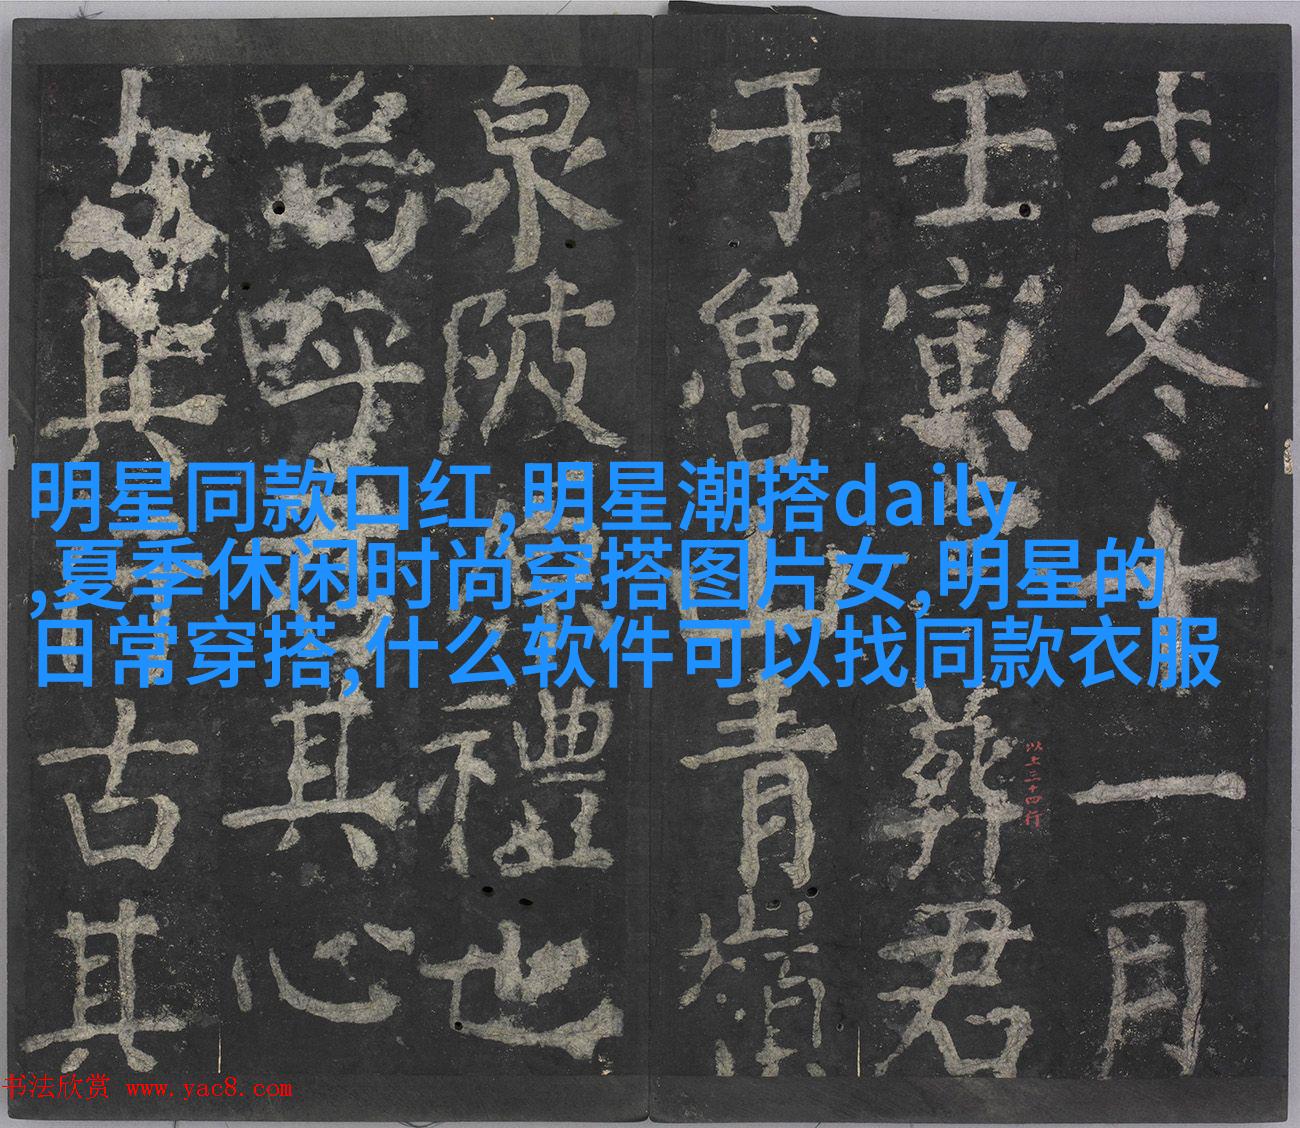 明星同款口红,明星潮搭daily
,夏季休闲时尚穿搭图片女,明星的
日常穿搭,什么软件可以找同款衣服
年冬十一月
壬寅
葬君
于魯
山青嶺
泉陂
禮也
嗚呼
其心
其
古其
以上三十四行
书法欣赏 www.yac8.com